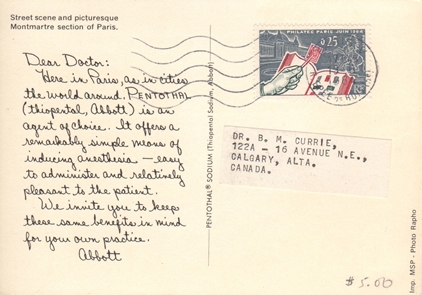 Street scene and picturesque
Montmartre section of Paris.
Dear Doctor:
Here in Paris, as in cities
the world around, PENTOTHAL
(thiopental, Abbott) is an
agent of choice. It offers a
remarkably simple means of
inducing anesthesia — easy
to administer and relatively
pleasant to the patient.
We invite you to keep
these same benefits in mind
for your own practice.
Abbott
PENTOTHAL® SODIUM (Thiopental Sodium, Abbott)
PHILATEC PARIS JUIN 1964
0,25
DR. B. M. CURRIE,
122A - 16 AVENUE N.E.,
CALGARY, ALTA.
CANADA.
Imp. MSP - Photo Rapho
$5.00